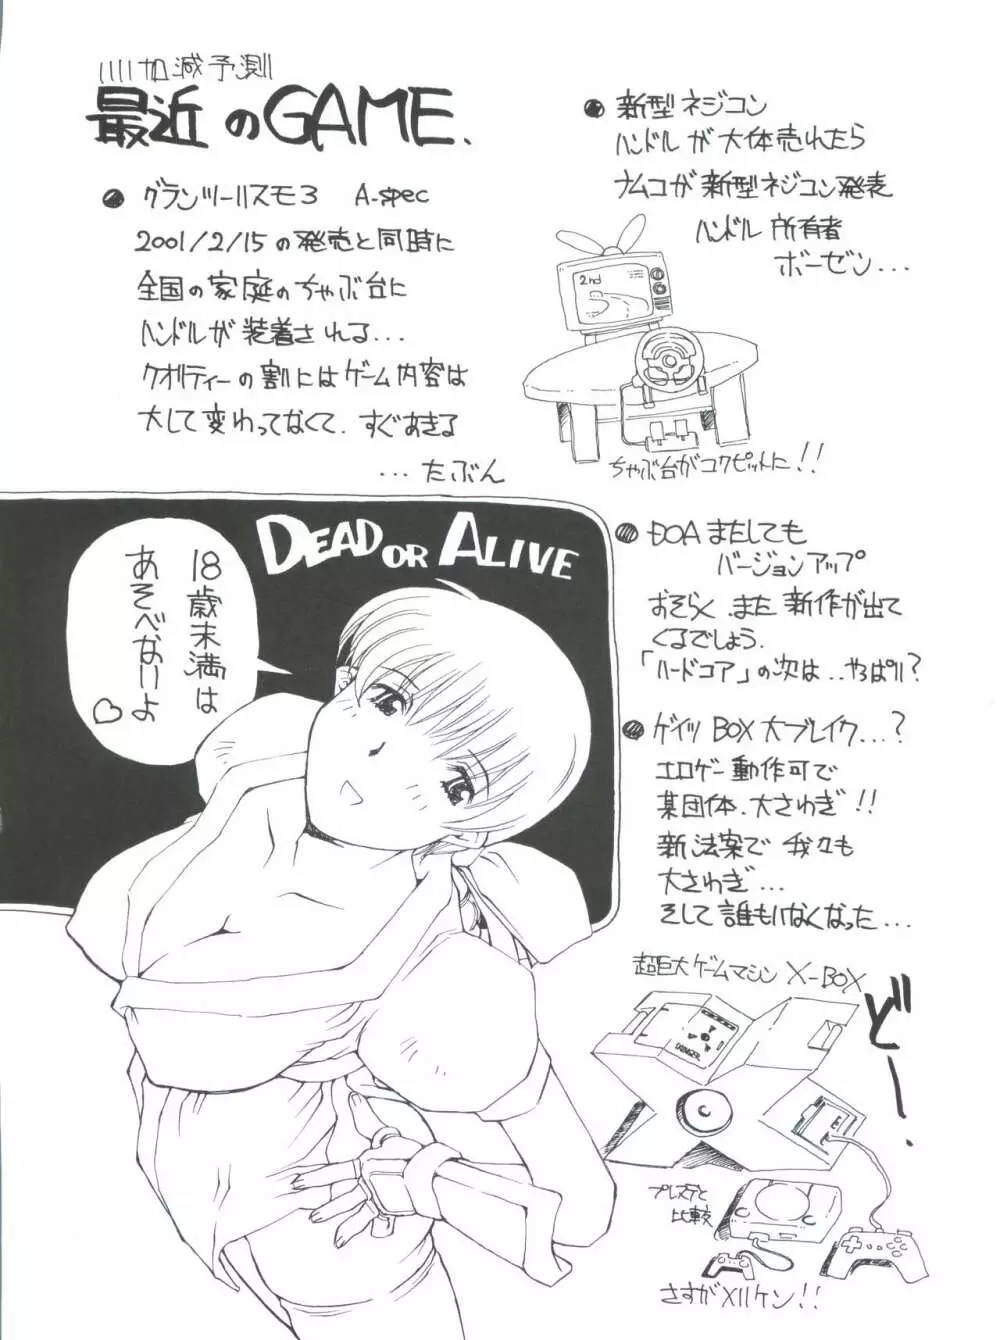 いいかげん予測
最近のGAME.
● グランツーリスモ3 A-spec
2001/2/15の発売と同時に
全国の家庭のちゃぶ台に
ハンドルが装着される...
クオリティーの割にはゲーム内容は
大して変わってなくて、すぐあきる
...たぶん
● 新型ネジコン
ハンドルが大体売れたら
ナムコが新型ネジコン発表
ハンドル所有者
ボーゼン...
2nd
ちゃぶ台がコクピットに!!
DEAD OR ALIVE
18歳末満は
あそべないよ♡
● DOAまたしても
バージョンアップ
おそらく、また新作が出て
くるでしょう.
「ハードコア」の次は..やっぱり?
● ゲイツBOX大ブレイク...?
エロゲー動作可で
某団体、大さわぎ!!
新法案で我々も
大さわぎ...
そして誰もいなくなった...
超巨大ゲームマシン X-BOX
どー.
DANGER
プレステと
比較
さすがメリケン!!